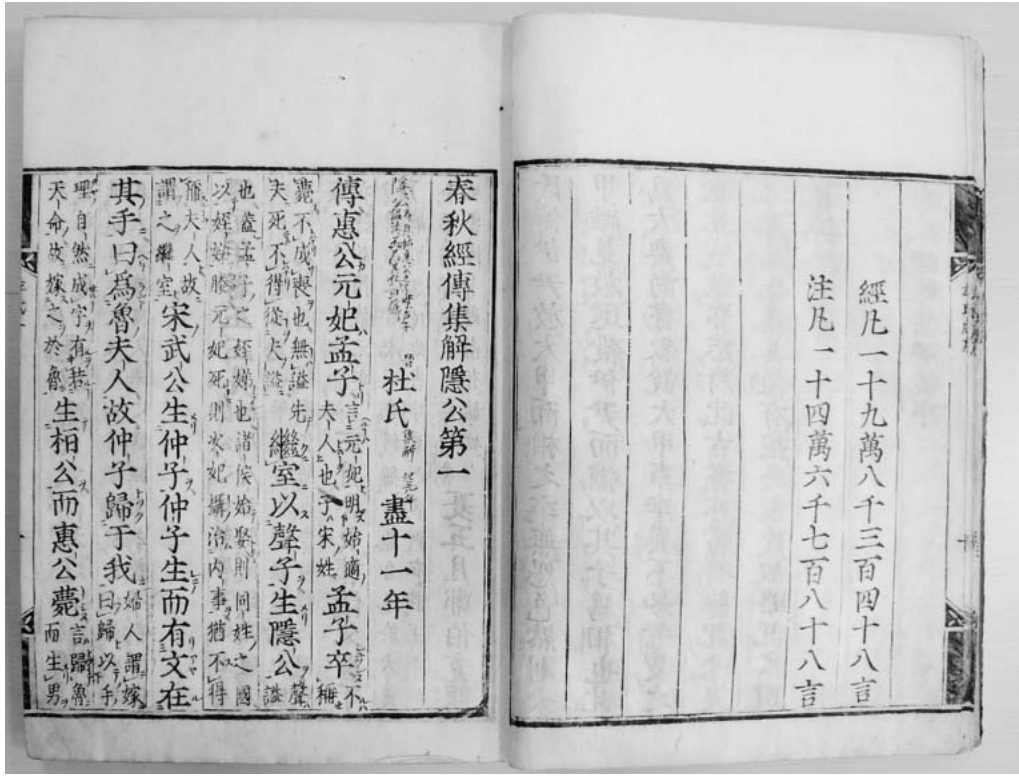 經凡一十九萬八千三百四十八言
注凡一十四萬六千七百八十八言
春秋經傳集解隱公第一
杜氏 集解 盡十一年
傳惠公元妃孟子言元妃明始適夫人也子宋姓孟子卒不稱
薨不成喪也無謚先夫死不得從夫謚繼室以聲子生隱公聲謚
也蓋孟子之姪娣也諸侯始娶則同姓之國以姪娣媵元妃死則次妃攝治內事猶不得
稱夫人故謂之繼室宋武公生仲子仲子生而有文在
其手曰爲魯夫人故仲子歸于我婦人謂嫁曰歸以手
理自然成字有若天命故嫁之於魯生桓公而惠公薨言歸魯而生男